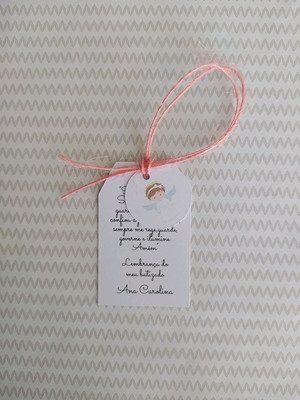 guar
confiou à
sempre me rege, guarde,
governe e ilumina
Amém"
Lembrança do
meu batizado
Ana Carolina